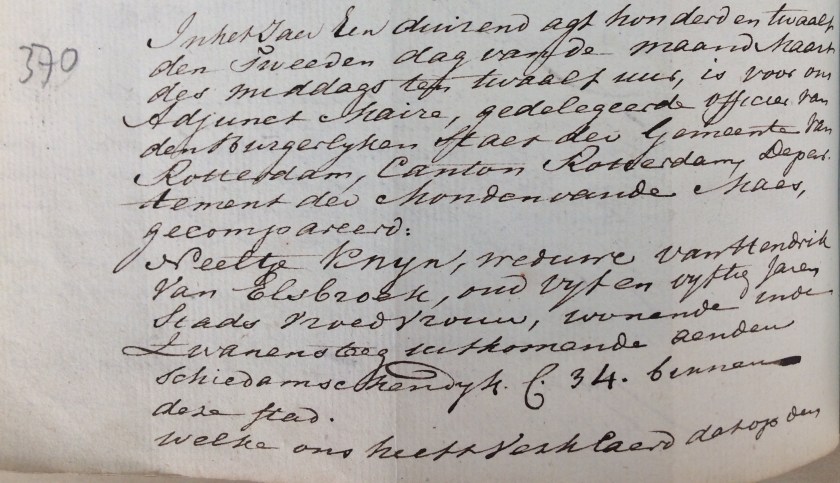 370
In het Jaer Een duizend agt honderd en twaalf
den Tweeden dag van de maand Maart
des middags ten twaalf uur, is voor ons
Adjunct Maire, gedelegeerde officier van
den Burgerlyken Staet der Gemeente van
Rotterdam, Canton Rotterdam, Depar-
tement der Monden van de Maes,
gecompareerd:
Neeltje Knyn, weduwe van Hendrik
Van Elsbroek, oud vyf en vyftig Jaren
Stads Vroedvrouw, wonende in de
Zwanensteeg uitkomende aen den
Schiedamschendyk. C. 34. binnen
deze stad.
welke ons heeft Verklaerd dat op den